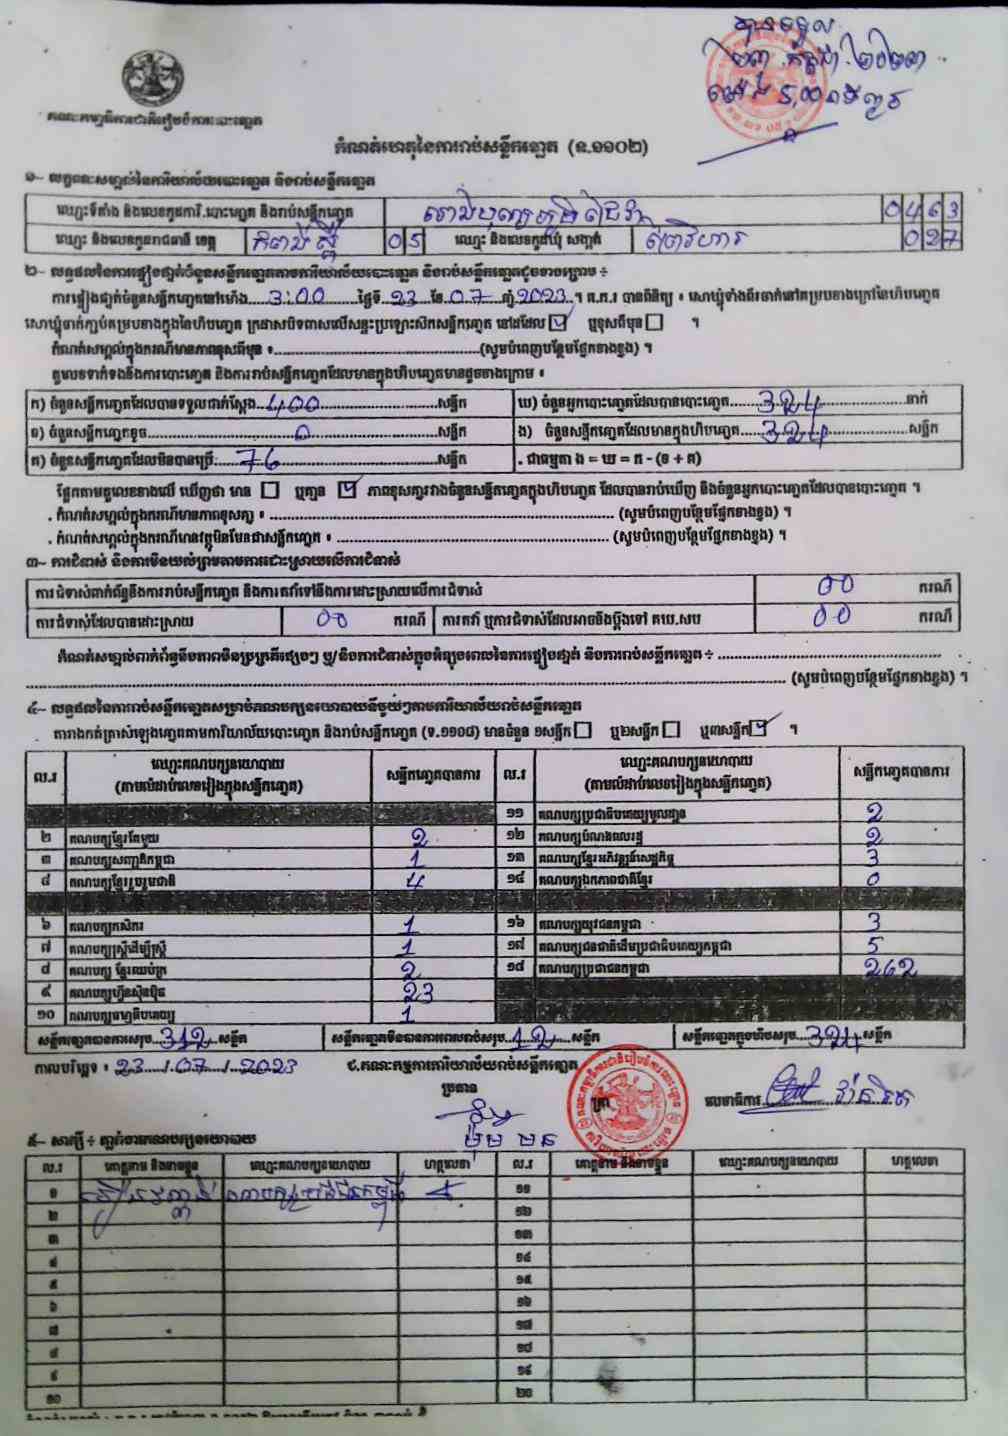 បានទទួល
២៣ កក្កដា ២០២៣
ម៉ោង 5,00នាទីល្ងាច
គណៈកម្មាធិការជាតិរៀបចំការបោះឆ្នោត
កំណត់ហេតុនៃការរាប់សន្លឹកឆ្នោត (ទ.១១០២)
១- លក្ខណៈសម្គាល់នៃការិយាល័យបោះឆ្នោត និងរាប់សន្លឹកឆ្នោត
ឈ្មោះទីតាំង និងលេខកូដការិ.បោះឆ្នោត និងរាប់សន្លឹកឆ្នោត 0463
ឈ្មោះ និងលេខកូដរាជធានី ខេត្ត កំពង់ស្ពឺ 05 ឈ្មោះ និងលេខកូដឃុំ សង្កាត់ ព្រៃវិហារ 027
២- លទ្ធផលនៃការផ្ទៀងផ្ទាត់ចំនួនសន្លឹកឆ្នោតតាមការិយាល័យបោះឆ្នោត និងរាប់សន្លឹកឆ្នោតដូចខាងក្រោម ÷
ការផ្ទៀងផ្ទាត់ចំនួនសន្លឹកឆ្នោតនៅម៉ោង 3:00 ថ្ងៃទី 23 ខែ 07 ឆ្នាំ 2023 ។ គ.ក.រ បានពិនិត្យ ៖ សោឃ្លុំទាំងពីរចាក់នៅគម្របខាងក្រៅនៃហិបឆ្នោត
សោឃ្លុំចាក់ភ្ជាប់គម្របខាងក្នុងនៃហិបឆ្នោត ក្រដាសបិទពាសលើសន្ទះប្រឡោះសិកសន្លឹកឆ្នោត នៅដដែល ☑ ឬខុសពីមុន ☐ ។
កំណត់សម្គាល់ក្នុងករណីមានភាពខុសពីមុន ៖ (សូមបំពេញបន្ថែមផ្នែកខាងខ្នង) ។
តួលេខទាក់ទងនឹងការបោះឆ្នោត និងការរាប់សន្លឹកឆ្នោតដែលមានក្នុងហិបឆ្នោតមានដូចខាងក្រោម ៖
ក) ចំនួនសន្លឹកឆ្នោតដែលបានទទួលជាក់ស្តែង 400 សន្លឹក ឃ) ចំនួនអ្នកបោះឆ្នោតដែលបានបោះឆ្នោត 324 នាក់
ខ) ចំនួនសន្លឹកឆ្នោតខូច 0 សន្លឹក ង) ចំនួនសន្លឹកឆ្នោតដែលមានក្នុងហិបឆ្នោត 324 សន្លឹក
គ) ចំនួនសន្លឹកឆ្នោតដែលមិនបានប្រើ 76 សន្លឹក . ជាធម្មតា ង = ឃ = ក - (ខ + គ)
ផ្អែកតាមតួលេខខាងលើ ឃើញថា មាន ☐ ឬគ្មាន ☑ ភាពខុសគ្នារវាងចំនួនសន្លឹកឆ្នោតក្នុងហិបឆ្នោត ដែលបានរាប់ឃើញ និងចំនួនអ្នកបោះឆ្នោតដែលបានបោះឆ្នោត ។
. កំណត់សម្គាល់ក្នុងករណីមានភាពខុសគ្នា ៖ (សូមបំពេញបន្ថែមផ្នែកខាងខ្នង) ។
. កំណត់សម្គាល់ក្នុងករណីមានវត្ថុមិនមែនជាសន្លឹកឆ្នោត ៖ (សូមបំពេញបន្ថែមផ្នែកខាងខ្នង) ។
៣- ការជំទាស់ និងការមិនយល់ព្រមតាមការដោះស្រាយលើការជំទាស់
ការជំទាស់ពាក់ព័ន្ធនឹងការរាប់សន្លឹកឆ្នោត និងការតវ៉ាទៅនឹងការដោះស្រាយលើការជំទាស់ 00 ករណី
ការជំទាស់ដែលបានដោះស្រាយ 00 ករណី ការតវ៉ា ឬការជំទាស់ដែលអាចនឹងប្តឹងទៅ គឃ.សប 00 ករណី
កំណត់សម្គាល់ពាក់ព័ន្ធនឹងភាពមិនប្រក្រតីផ្សេងៗ ឬ/និងការជំទាស់ក្នុងអំឡុងពេលនៃការផ្ទៀងផ្ទាត់ និងការរាប់សន្លឹកឆ្នោត ÷
(សូមបំពេញបន្ថែមផ្នែកខាងខ្នង) ។
៤- លទ្ធផលនៃការរាប់សន្លឹកឆ្នោតសម្រាប់គណបក្សនយោបាយនីមួយៗតាមការិយាល័យរាប់សន្លឹកឆ្នោត
តារាងកត់ត្រាសំឡេងឆ្នោតតាមការិយាល័យបោះឆ្នោត និងរាប់សន្លឹកឆ្នោត (ទ.១១០៨) មានចំនួន ១សន្លឹក ☐ ឬ២សន្លឹក ☐ ឬ៣សន្លឹក ☑ ។
ល.រ ឈ្មោះគណបក្សនយោបាយ (តាមលំដាប់លេខរៀងក្នុងសន្លឹកឆ្នោត) សន្លឹកឆ្នោតបានការ ល.រ ឈ្មោះគណបក្សនយោបាយ (តាមលំដាប់លេខរៀងក្នុងសន្លឹកឆ្នោត) សន្លឹកឆ្នោតបានការ
១១ គណបក្សប្រជាធិបតេយ្យមូលដ្ឋាន 2
២ គណបក្សខ្មែរតែមួយ 2 ១២ គណបក្សបំណងពលរដ្ឋ 2
៣ គណបក្សសញ្ជាតិកម្ពុជា 1 ១៣ គណបក្សខ្មែរអភិវឌ្ឍន៍សេដ្ឋកិច្ច 3
៤ គណបក្សខ្មែររួបរួមជាតិ 4 ១៤ គណបក្សឯកភាពជាតិខ្មែរ 0
៦ គណបក្សកសិករ 1 ១៦ គណបក្សយុវជនកម្ពុជា 3
៧ គណបក្សស្ត្រីដើម្បីស្ត្រី 1 ១៧ គណបក្សជនជាតិដើមប្រជាធិបតេយ្យកម្ពុជា 5
៨ គណបក្ស ខ្មែរឈប់ក្រ 2 ១៨ គណបក្សប្រជាជនកម្ពុជា 262
៩ គណបក្សហ៊្វុនស៊ិនប៉ិច 23
១០ គណបក្សធម្មាធិបតេយ្យ 1
សន្លឹកឆ្នោតបានការសរុប 312 សន្លឹក សន្លឹកឆ្នោតមិនបានការពេលរាប់សរុប 12 សន្លឹក សន្លឹកឆ្នោតក្នុងហិបសរុប 324 សន្លឹក
កាលបរិច្ឆេទ ៖ 23 / 07 / 2023 ជ.គណៈកម្មការការិយាល័យរាប់សន្លឹកឆ្នោត
ប្រធាន
លេខាធិការ
ម៉ុម មន
៥- សាក្សី ÷ ភ្នាក់ងារគណបក្សនយោបាយ
ល.រ គោត្តនាម និងនាមខ្លួន ឈ្មោះគណបក្សនយោបាយ ហត្ថលេខា ល.រ គោត្តនាម និងនាមខ្លួន ឈ្មោះគណបក្សនយោបាយ ហត្ថលេខា
១ គណបក្សប្រជាជនកម្ពុជា ១១
២ ១២
៣ ១៣
៤ ១៤
៥ ១៥
៦ ១៦
៧ ១៧
៨ ១៨
៩ ១៩
១០ ២០